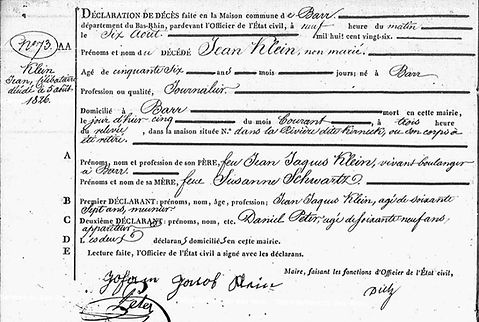 DÉCLARATION DE DÉCÈS faite en la Maison commune de Barr.
département du Bas-Rhin, pardevant l'Officier de l'État civil, à neuf heure du matin
le six Août mil huit cent vingt-six.
N.º 73.
AA
Prénoms et nom du DÉCÉDÉ Jean Klein, non marié.
Klein
Jean Célibataire
décédé le 5 août.
1826.
Agé de cinquante six ans mois jours; né à Barr
Profession ou qualité, Journalier
Domicilié à Barr mort en cette mairie,
le jour d'hier cinq du mois Courant à trois heure
du relevée, dans la maison située N.º dans la Rivière dite Kirneck, où son corps a
été retiré.
A
Prénoms, nom et profession de son PÈRE, feu Jean Jaques Klein, vivant boulanger
à Barr.
Prénoms et nom de sa MÈRE, feue Susanne Schwartz.
B
Premier DÉCLARANT: prénoms, nom, âge, profession: Jean Jaques Klein, agé de soixante
sept ans, meunier
C
Deuxième DÉCLARANT: prénoms, nom, etc. Daniel Peter, agé de soixante neuf ans,
appariteur
D
Les deux déclarans domiciliés en cette mairie.
E
Lecture faite, l'Officier de l'État civil a signé avec les déclarans.
Maire, faisant les fonctions d'Officier de l'État civil,
Johann Jacob Klein
Peter
Dietz